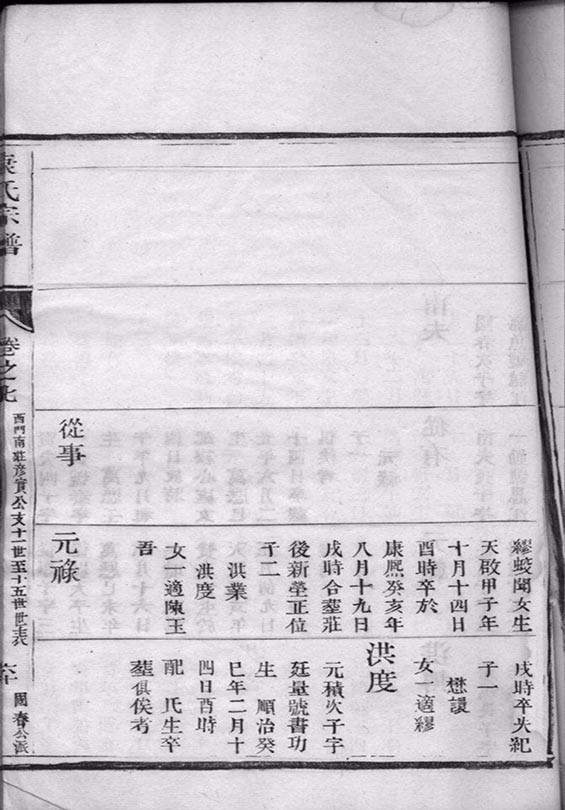 繆蛟聞女生
天啟甲子年
十月十四日
酉時卒於
康熙癸亥年
八月十九日
戌時合塟莊
後新塋正位
子二
洪業
洪度
女一適陳玉
吾
戌時卒失紀
子一
懋諼
女一適繆
洪度
元積次子字
廷量號書功
生 順治癸
巳年二月十
四日酉時
配 氏生卒
塟俱俟考
從事
元祿
袁氏宗譜
卷之七
西門南莊彦實公支十一世至十五世世表
六十
國春公派